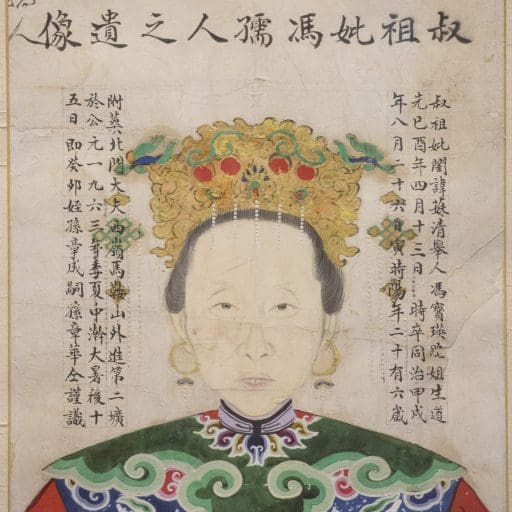 叔祖妣馮孺人之遺像
叔祖妣閨諱蘇清舉人馮寶瑛姐生道
光己酉年四月十三日 時卒同治甲戌
年八月二十六日寅時陽年二十有六歲
附葬北門大大西嶺馬鞍山外進第二壙
於公元一九六三年季夏中澣大暑後十
五日即癸卯姪孫章成嗣孫章華仝謹識
人